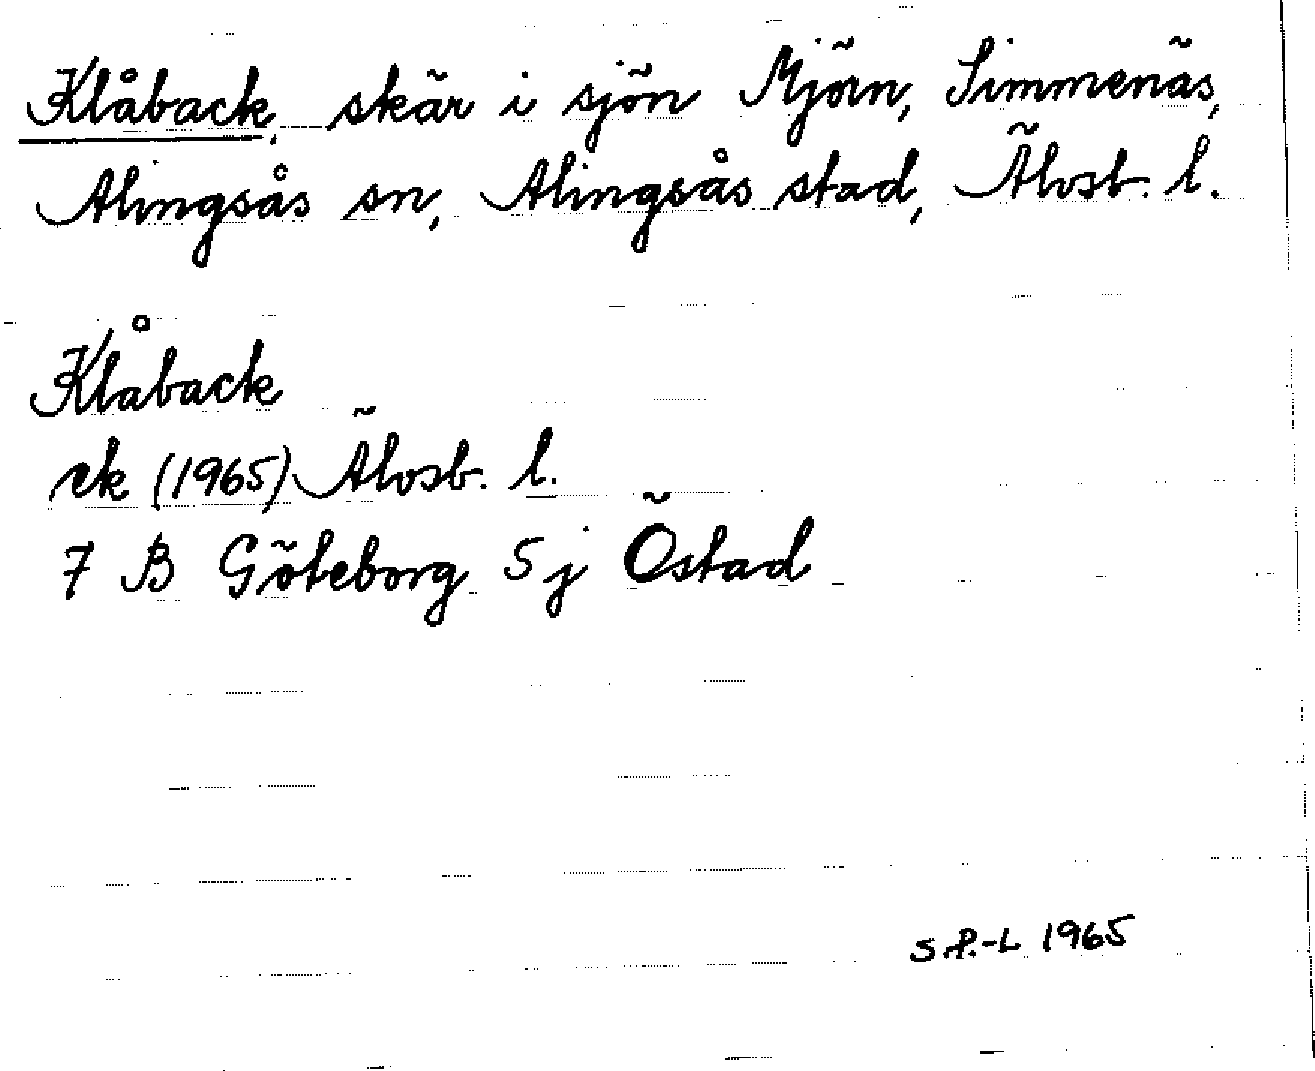 Klåback, skär i sjön Mjörn, Simmenäs,
Alingsås sn, Alingsås stad, Älvsb. l.
Klåback
ek (1965) Älvsb. l.
7 B Göteborg 5j Östad
S.P.-L 1965